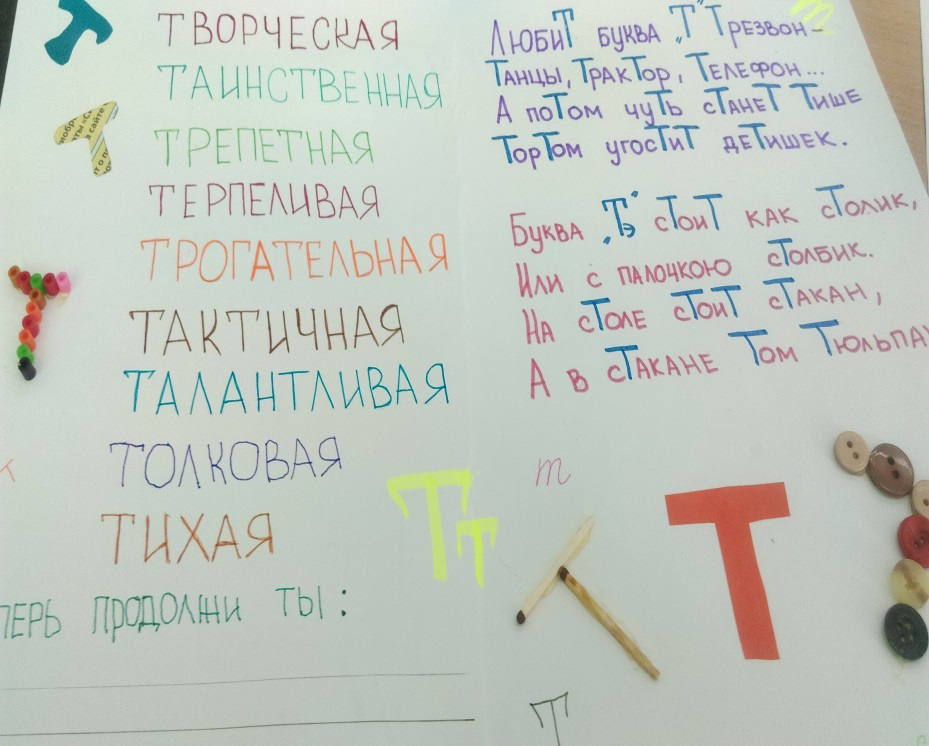 ТВОРЧЕСКАЯ
ТАИНСТВЕННАЯ
ТРЕПЕТНАЯ
ТЕРПЕЛИВАЯ
ТРОГАТЕЛЬНАЯ
ТАКТИЧНАЯ
ТАЛАНТЛИВАЯ
ТОЛКОВАЯ
ТИХАЯ
ПЕРЬ ПРОДОЛЖИ ТЫ:
ЛЮБИТ БУКВА „Т" ТРЕЗВОН-
ТАНЦЫ, ТРАКТОР, ТЕЛЕФОН...
А ПОТОМ ЧУТЬ СТАНЕТ ТИШЕ
ТОРТОМ УГОСТИТ ДЕТИШЕК.
БУКВА „Тэ" СТОИТ КАК СТОЛИК,
ИЛИ С ПАЛОЧКОЮ СТОЛБИК.
НА СТОЛЕ СТОИТ СТАКАН,
А В СТАКАНЕ ТОМ ТЮЛЬПА
Тт
т
Т
Т
Т